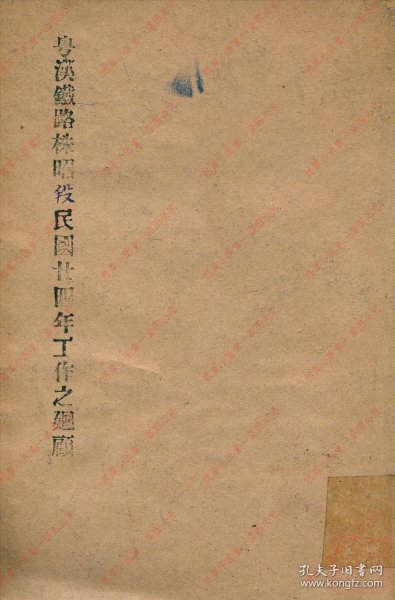 粤漢鐵路株韶段民國廿四年工作之廻顧
孔夫子旧书网
www.kongfz.com